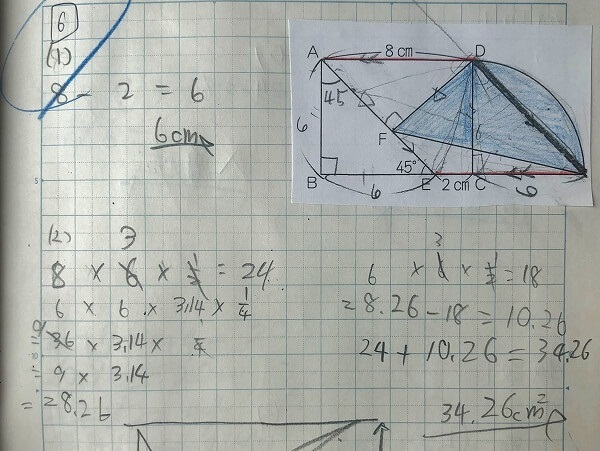 6
(1)
8 - 2 = 6
6cm
A 8cm D
45
6 6
F
45°
B 6 E 2cm C 6
(2) 3
8 × 6 × 1/2 = 24
6 × 6 × 3.14 × 1/4
9
36 × 3.14 × 1/4
9 × 3.14
= 28.26
3
6 × 6 × 1/2 = 18
28.26 - 18 = 10.26
24 + 10.26 = 34.26
34.26cm²